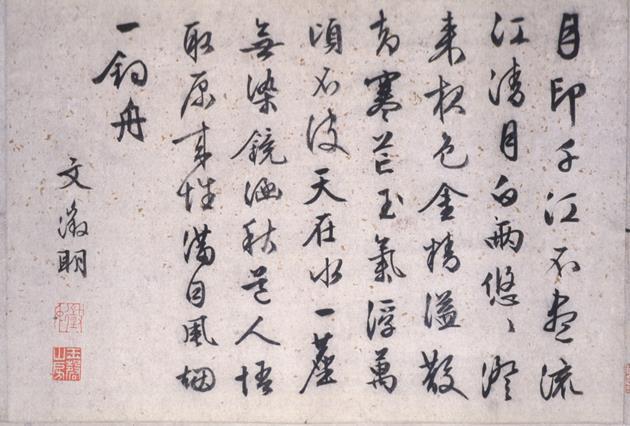 月印千江不盡流
江清月白兩悠〻澄
來色金精溢散
寒芒玉氣浮萬
頃不波天在水一塵
無染鏡涵秋道人悟
取原來性滿目風烟
一釣舟
文徵明
玉磬山房